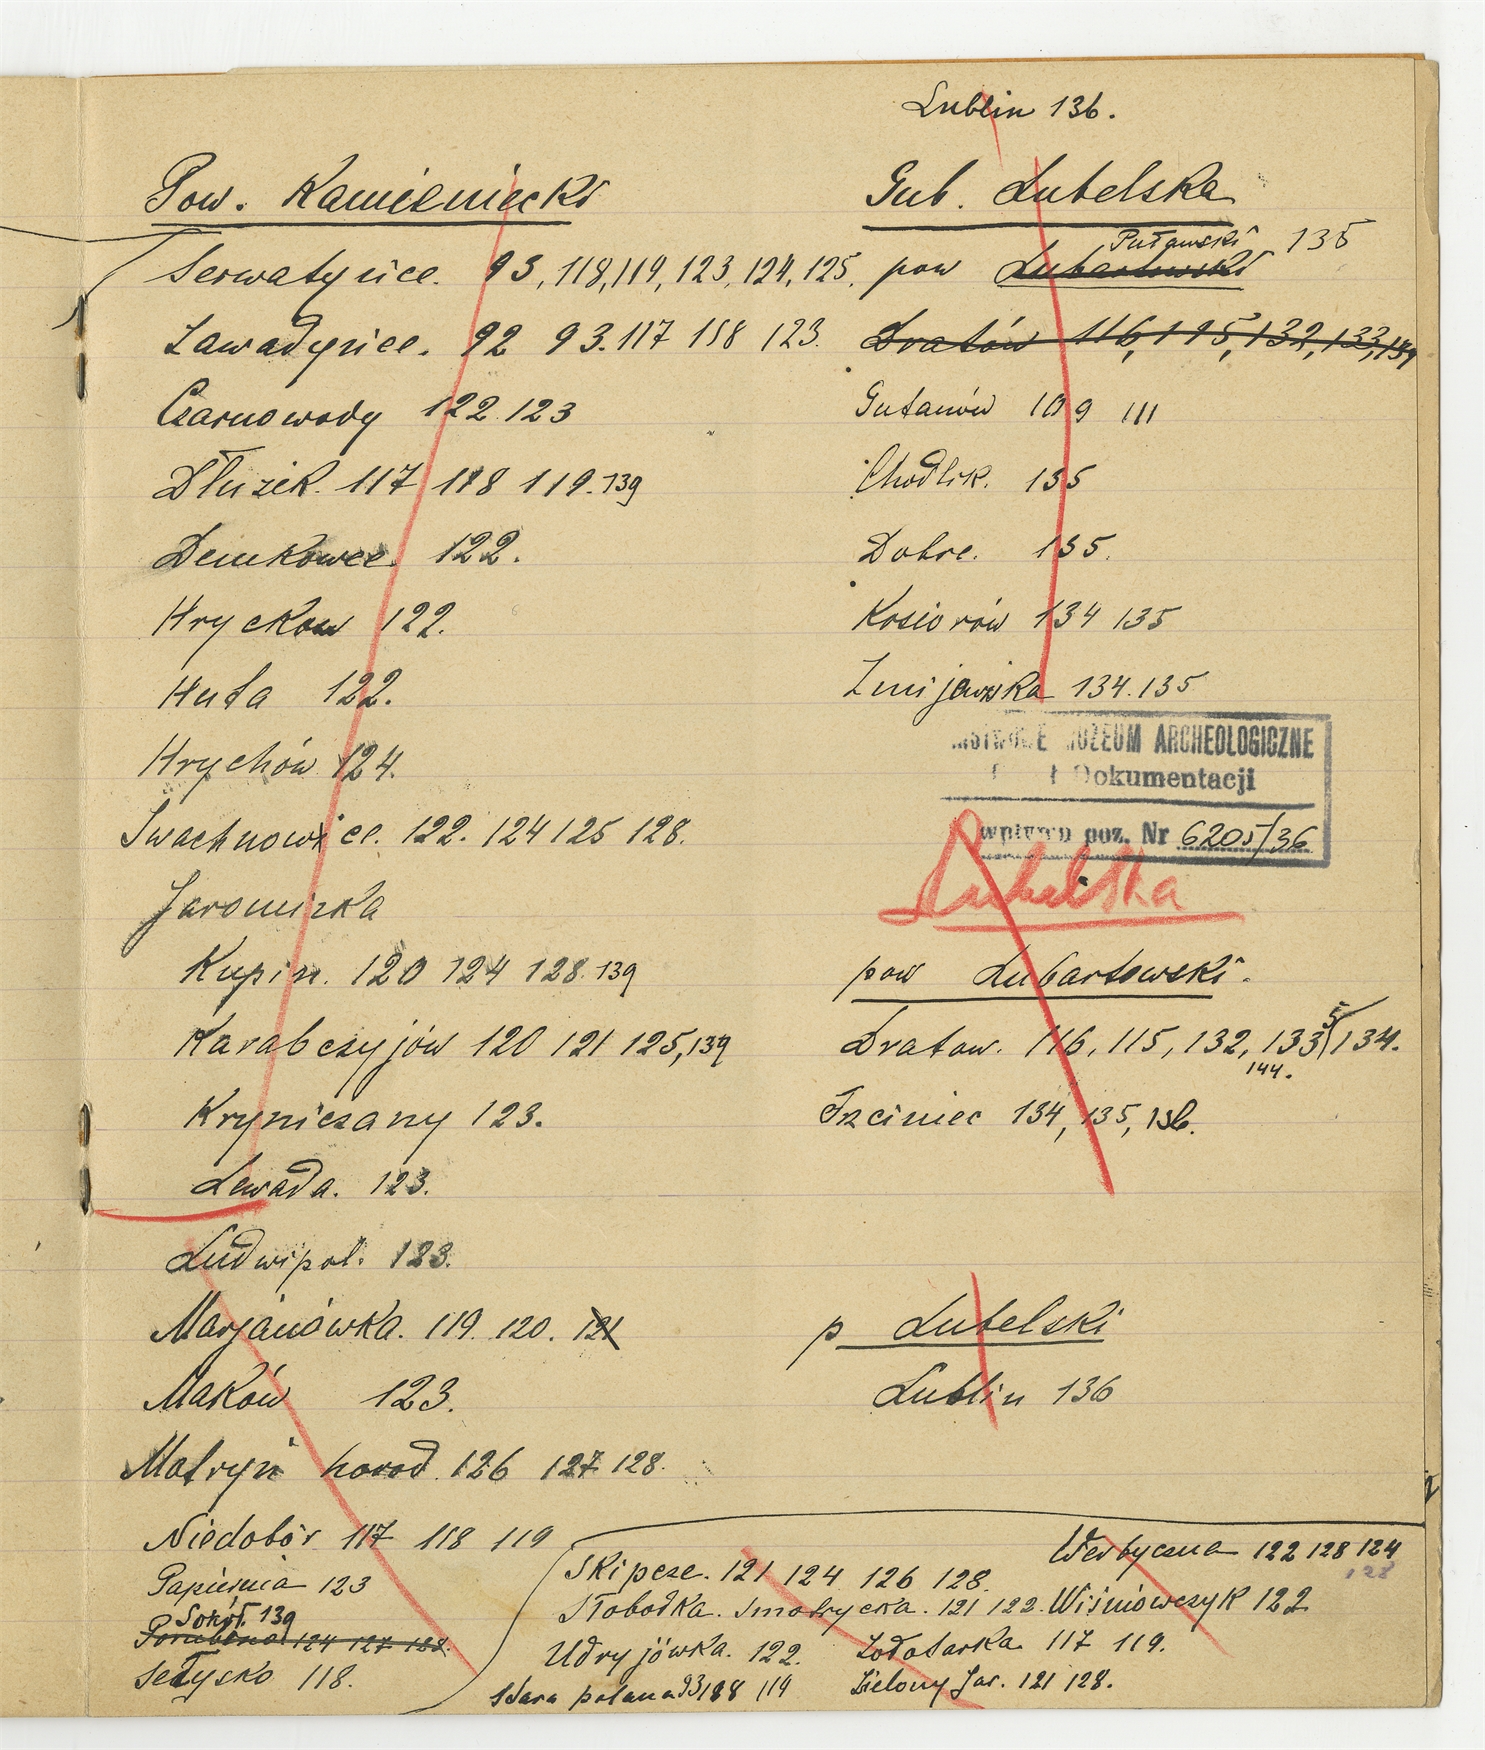 Lublin 136.
Pow. Kamieniecki
Serwatyńce. 93, 118, 119, 123, 124, 125.
Zawadyńce. 92 93. 117 118 123.
Czarnowody 122 123
Dłużek. 117 118 119. 139
Demkowce. 122.
Hryckow 122.
Huta 122.
Hrychów 124.
Iwachnowice. 122. 124 125 128.
Jaromirka
Kupin. 120 124 128. 139
Karabczyjów 120 121 125, 139
Kryniczany 123.
Lewada. 123.
Ludwipol. 123.
Marjanówka. 119. 120. 121
Maków 123.
Matryń horod. 126 127 128.
Niedobór 117 118 119
Papiernia 123
Sokół. 139
124 127 128.
Sedysko 118.
Skipcze. 121 124 126 128.
Słobodka. Smotrycka. 121 122.
Udryjówka. 122.
Stara polana 93 118 119
Werbyczna 122 128 124
128
Wiśniówczyk 122
Zołotarka 117 119.
Zielony Jar. 121 128.
Gub. Lubelska
Puławski 135
pow Lubartowski
Dratów 116, 115, 132, 133, 134
Gutanów 109 111
Chodlik. 135
Dobre. 135.
Kosiorów 134 135
Żmijewiska 134. 135
MUZEUM ARCHEOLOGICZNE
Dokumentacji
wpływu poz. Nr 6205/36
Lubelska
pow Lubartowski.
Dratow. 116, 115, 132, 133, 134.
144.
Trzciniec 134, 135, 136.
p Lubelski
Lublin 136